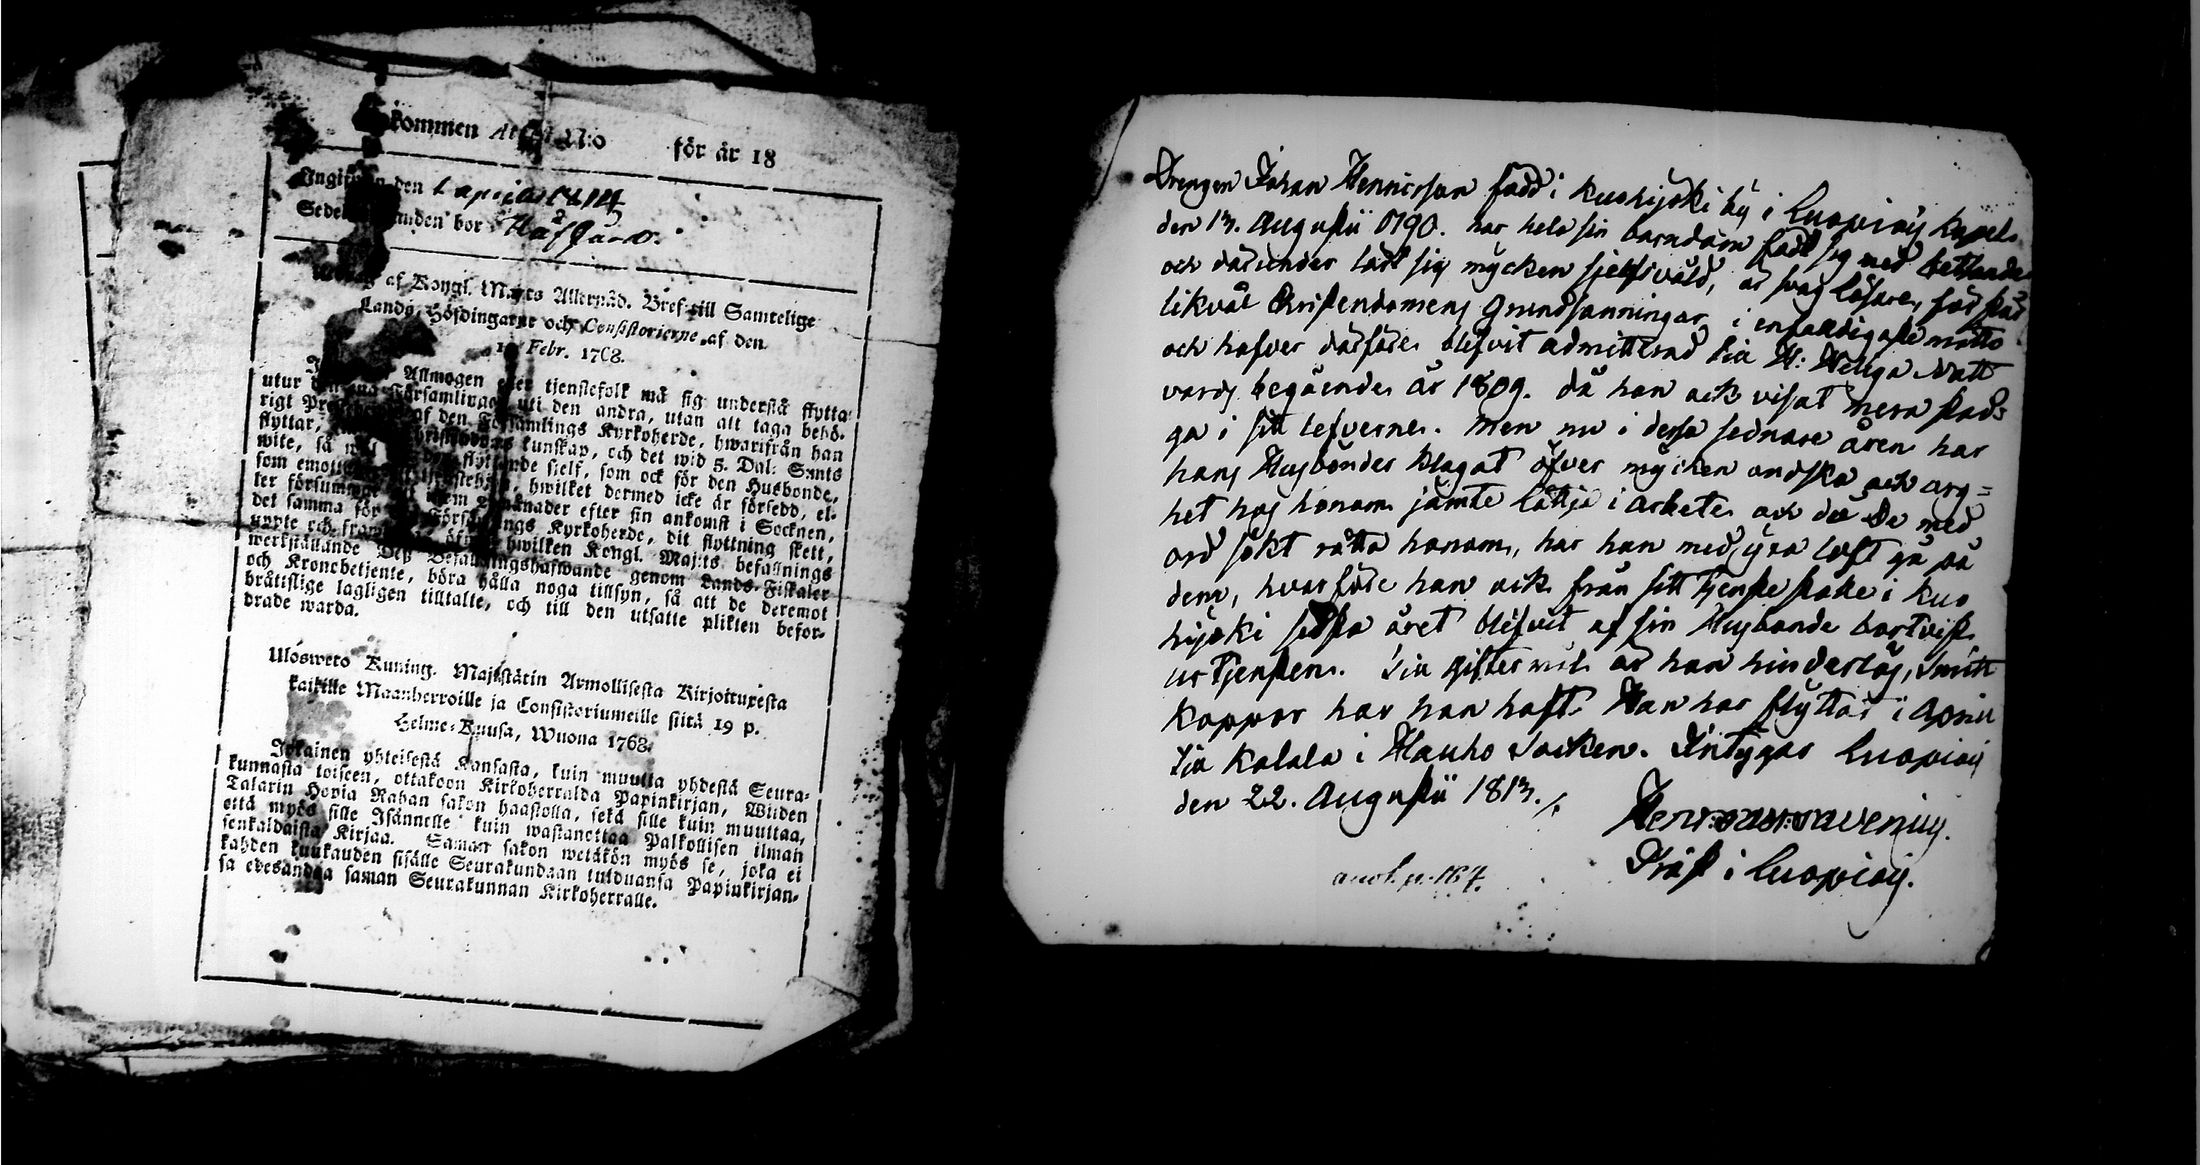 kommen Attest N:o för år 18
Ingifven den 1 april 1814
Sedel bor
af Kongl. Maj:ts Allernåd. Bref till Samtelige
Lands-Höfdingarne och Consistorierne af den
Febr. 1768.
Allmogen eller tjenstefolk må sig understå flytta
utur Församlingen uti den andra, utan att taga behö-
rigt af den Församlings Kyrkoherde, hwarifrån han
flyttar, kunskap, och det wid 5. Dal: S:mts
wite, så sielf, som ock för den Husbonde,
som hwilket dermed icke är försedd, el-
ler månader efter sin ankomst i Socknen,
det samma för Kyrkoherde, dit flyttning skett,
hwilken Kongl. Maj:ts befallnings
werkställande genom Lands-Fiskaler
och Kronobetjente, böra hålla noga tillsyn, så att de deremot
bråttslige lagligen tilltalte, och till den utsatte plikten befor-
drade warda.
Ulosweto Kuning. Majestätin Armollisesta Kirjoituxesta
kaikille Maanherroille ja Consistoriumeille siitä 19 p.
Helme-Kuusa, Wuona 1768.
Jokainen yhteisestä Kansasta, kuin muutta yhdestä Seura-
kunnasta toiseen, ottakoon Kirkoherralda Papinkirjan, Wiiden
Talarin Hopia Rahan sakon haastolla, sekä sille kuin muuttaa,
että myös sille Isännelle kuin wastanottaa Palkollisen ilman
senkaldaista Kirjaa. Saman sakon wetäkön myös se, joka ei
kahden kuukauden sisälle Seurakundaan tulduansa Papinkirjan-
sa edesandaa saman Seurakunnan Kirkoherralle.
Drengen Johan Henricsson född i Kuohijoki by i Luopiois Kapell
den 13. Augustii 1790. har hela sin barndom födt sig med betlande
och därunder lärt sig mycken sjelfsvåld, är svag läsare, förstår
likväl Christendomens Grundsanningar i enfaldigaste måtto
och hafver därföre blifvit admitterad til H: Heliga Natt
vards begående år 1809. då han ock visat mera stad-
ga i sitt lefverne. Men nu i dessa sednare åren har
hans Husbönder klagat öfver mycken ondska och arg=
het hos honom jämte lättja i arbete och då De med
ord sökt rätta honom, har han med yxa loft gå på
dem, hvarföre han ock från sitt Tjenste ställe i Kuo
hijoki sidsta året blifvit af sin Husbonde bortvist
ur Tjensten. Til giftermål är han hinderlös, Smitt
koppor har han haft. Han har flyttat i April
til Kalala i Hauho Socken. Intygar Luopiois
den 22. Augustii 1813./.
Präst i Luopiois.